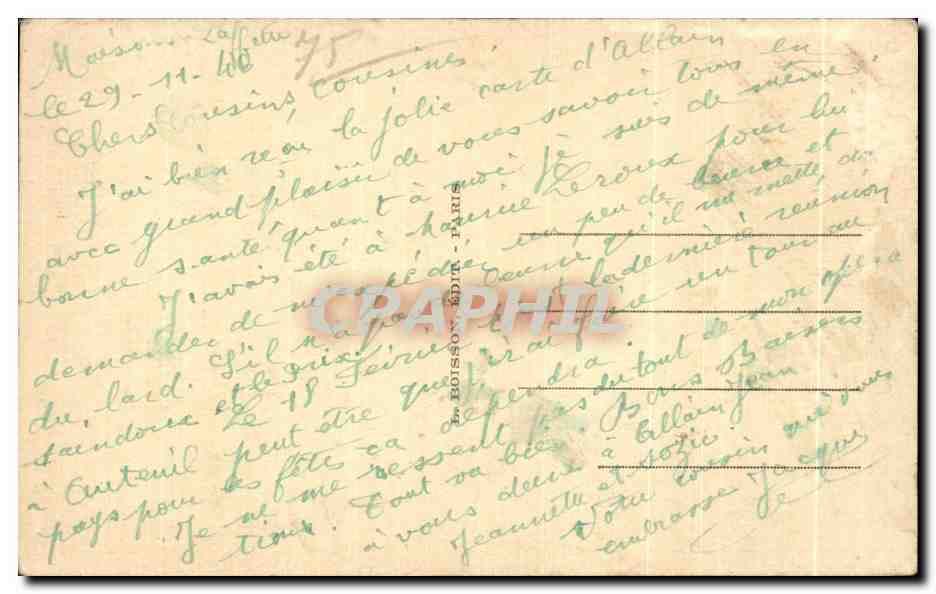 Maisons-Laffitte 75
le 29-11-40
Chers Cousins, Cousines
J'ai bien reçu la jolie carte d'Allain
avec grand plaisir de vous savoir tous en
bonne santé quant à moi je suis de même.
J'avais été à Maurice Leroux pour lui
demander de m'expédier un peu de beurre et
du lard. S'il n'a pas de beurre qu'il me mette du
saindoux et le prix. la dernière réunion
à Auteuil Le 18 Février
peut être que j'irai faire un tour au
pays pour les fêtes ça dépendra.
Je ne me ressent pas du tout de mon opéra
tion. Tout va bien. Bons Baisers
à vous deux à Allain Jean
Jeannette et
Votre cousin qui vous
embrasse Jacques
L. BOISSON, ÉDIT. - PARIS
CPAPHIL